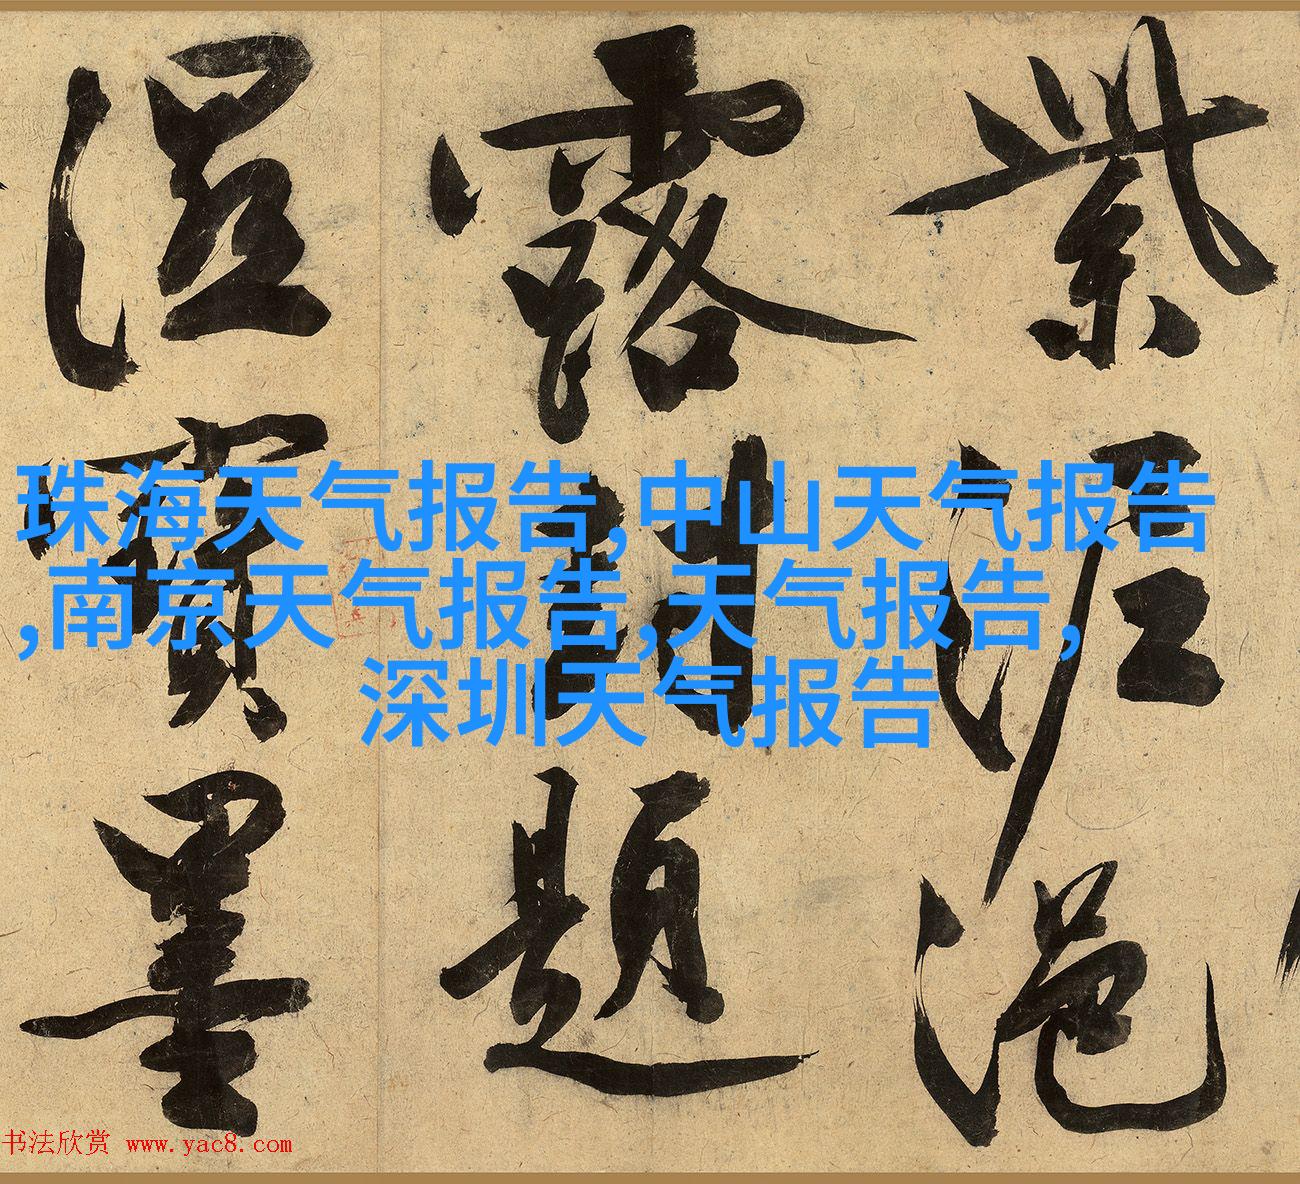 紫泥浥
露封題
濕寶墨
珠海天气报告,中山天气报告
,南京天气报告,天气报告,
深圳天气报告
书法欣赏 www.yac8.com